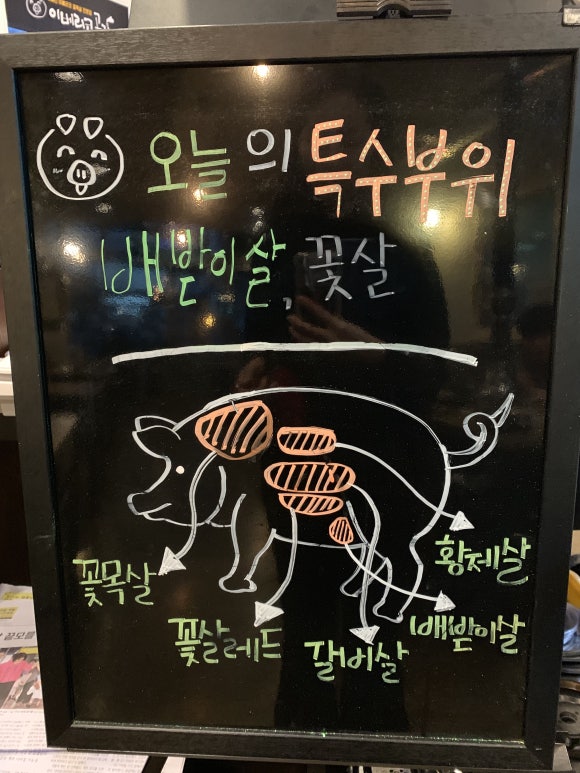 이베리코
오늘의 특수부위
빼받이살, 꽃살
꽃목살
꽃살레드
갈비살
빼받이살
황제살